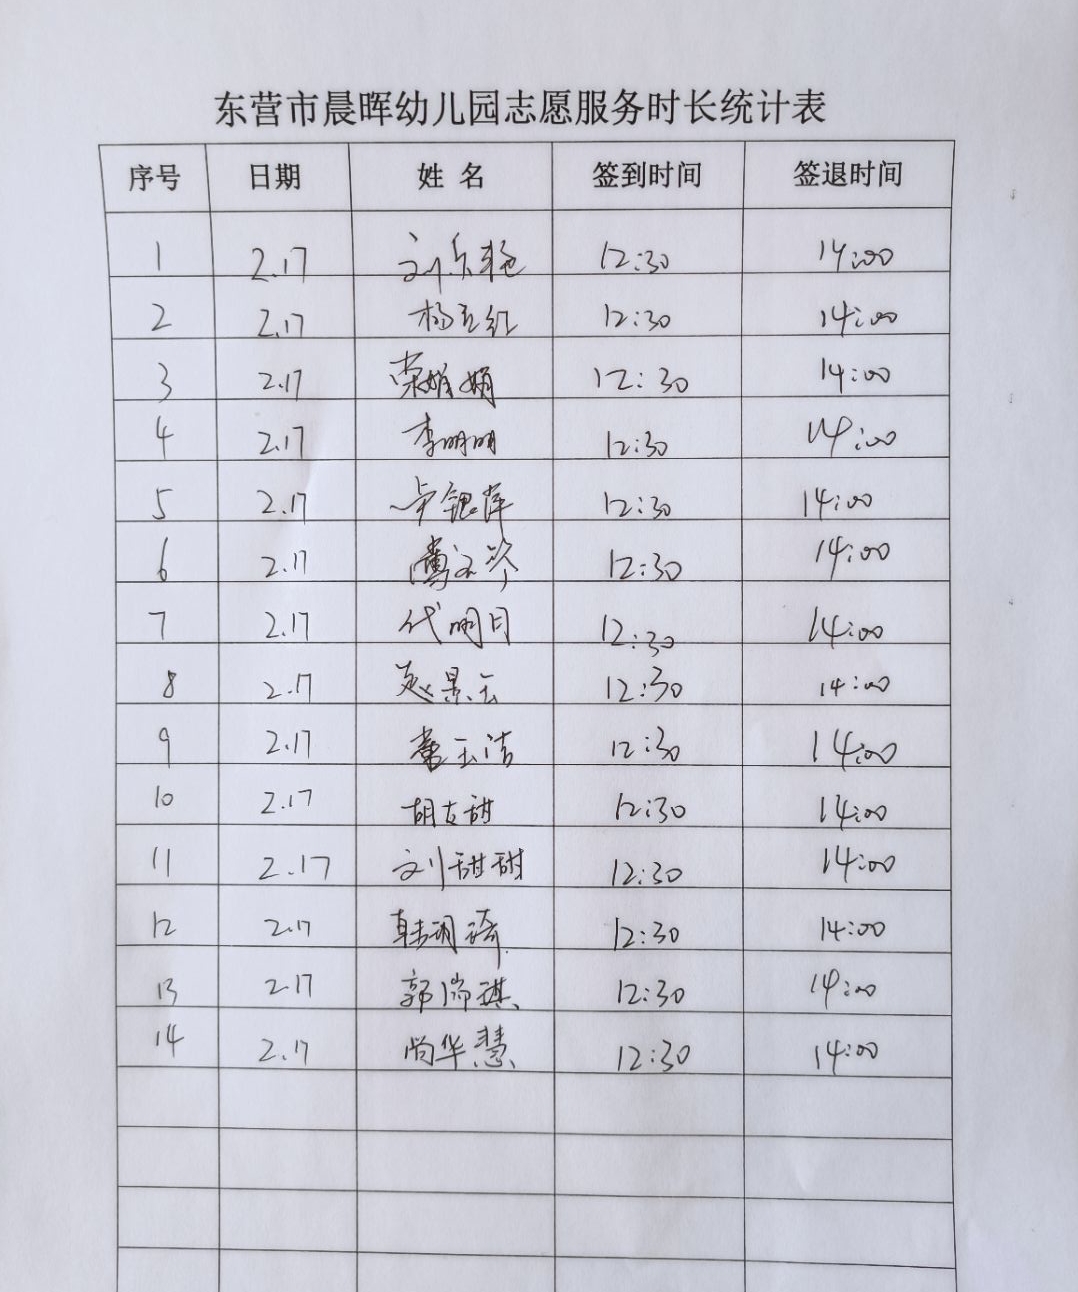 东营市晨晖幼儿园志愿服务时长统计表
序号 日期 姓名 签到时间 签退时间
1 2.17 刘东艳 12:30 14:00
2 2.17 杨立红 12:30 14:00
3 2.17 荣娟娟 12:30 14:00
4 2.17 李明明 12:30 14:00
5 2.17 卢银萍 12:30 14:00
6 2.17 12:30 14:00
7 2.17 代明月 12:30 14:00
8 2.17 赵景玉 12:30 14:00
9 2.17 董玉洁 12:30 14:00
10 2.17 胡文甜 12:30 14:00
11 2.17 刘甜甜 12:30 14:00
12 2.17 韩玥琦 12:30 14:00
13 2.17 郭瑞琪 12:30 14:00
14 2.17 尚华慧 12:30 14:00